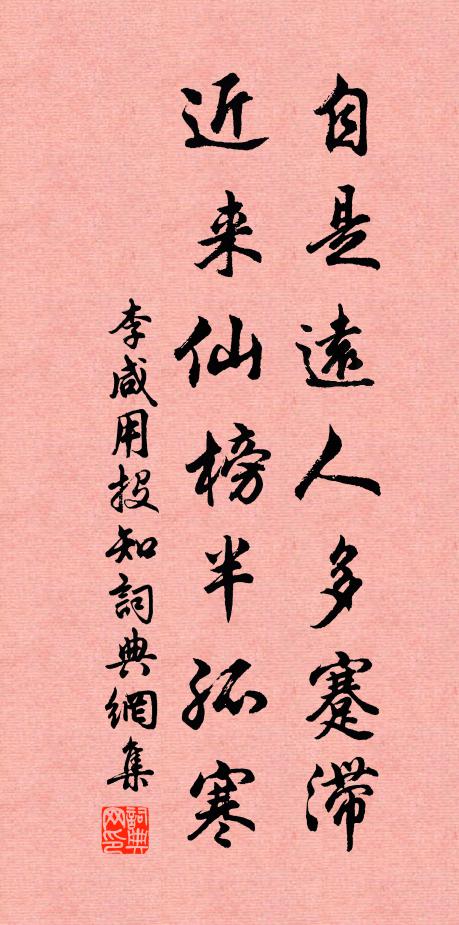 自是遠人多蹇滯
近来仙榜半孤寒
李咸用投知詞典網集
詞典网印